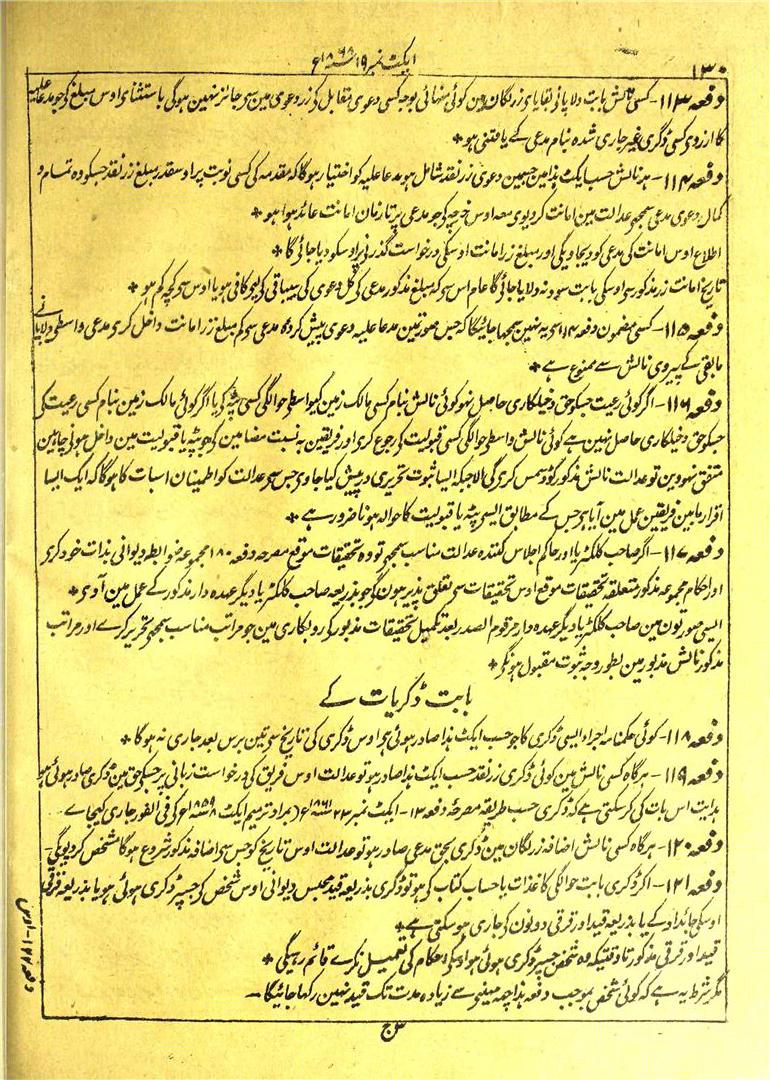 ۱۳۰
ایکٹ نمبر ۱۹ سنہ ۱۸۶۸ء
دفعہ ۱۱۳- کسی نالش بابت دلاپائی بقایای زر لگان مین کوئی منہائی بوجہ کسی دعوی متقابل کی زر دعوی مین سی جائز نہین ہوگی باستثنای اوس مبلغ کی جو مدعا علیہ
کا ازروی کسی ڈگری غیر جاری شدہ بنام مدعی کے یافتنی ہو *
دفعہ ۱۱۴- ہر نالش حسب ایکٹ ہذا مین جسمین دعوی زر نقد شامل ہو مدعا علیہ کو اختیار ہوگا کہ مقدمہ کی کسی نوبت پر اوسقدر مبلغ زر نقد جسکو وہ تمام و
کمال دعوی مدعی سمجھی عدالت مین امانت کردیوی معہ اوس خرچہ کی جو مدعی پر تا زمان امانت عائد ہوا ہو *
اطلاع اوس امانت کی مدعی کو دیجاویگی اور مبلغ زر امانت اوسکی درخواست گذرنی پر اوسکو دیا جائی گا *
تاریخ امانت زر مذکور سی اوسکی بابت سود نہ دلایا جائی گا عام اس سی کہ مبلغ مذکور مدعی کی کل دعوی کی بیباقی کی لیو کافی ہو یا اوس سی کچھ کم ہو *
دفعہ ۱۱۵- کسی مضمون دفعہ ۱۱۴ سی یہ نہین سمجھا جائیگا کہ جس صورتمین مدعا علیہ دعوی پیش کردہ مدعی سی کم مبلغ زر امانت داخل کری مدعی واسطی دلاپانے
مابقی کے پیروی نالش سے ممنوع ہے *
دفعہ ۱۱۶- اگر کوئی رعیت جسکو حق دخیلکاری حاصل نہو کوئی نالش بنام کسی مالک زمین کیواسطی حوالگی کسی پٹہ کی یا اگر کوئی مالک زمین بنام کسی رعیت کی
جسکو حق دخیلکاری حاصل نہین ہے کوئی نالش واسطی حوالگی کسی قبولیت کی رجوع کری اور فریقین بہ نسبت مضامین کی جو پٹہ یا قبولیت مین داخل ہونی چاہئین
متفق نہووین تو عدالت نالش مذکور کو ڈسمس کری گی الا جبکہ ایسا ثبوت تحریری درپیش کیا جاوی جس سی عدالت کو اطمینان اسبات کا ہوگا کہ ایک ایسا
اقرار مابین فریقین عمل مین آیا ہی جس کے مطابق ایسی پٹہ یا قبولیت کا حوالہ ہونا ضرور ہے *
دفعہ ۱۱۷- اگر صاحب کلکٹر یا اور حاکم اجلاس کنندہ عدالت مناسب سمجھی تو وہ تحقیقات موقع مصرحہ دفعہ ۱۸۰ مجموعہ ضوابط دیوانی بذات خود کری
اور احکام مجموعہ مذکور متعلقہ تحقیقات موقع اوس تحقیقات سی تعلق پذیر ہون گی جو بذریعہ صاحب کلکٹر یا دیگر عہدہ دار مذکور کے عمل مین آوی *
ایسی صورتون مین صاحب کلکٹر یا دیگر عہدہ دار مرقوم الصدر بعد تکمیل تحقیقات مذبور کی روبکاری مین جو مراتب مناسب سمجھی تحریر کرے اور مراتب
مذکور نالش مذبور مین بطور وجہ ثبوت مقبول ہونگی *
بابت ڈگریات کے
دفعہ ۱۱۸- کوئی حکمنامہ اجراء ایسی ڈگری کا جو حسب ایکٹ ہذا صادر ہوئی ہی اوس ڈگری کی تاریخ سی تین برس بعد جاری نہ ہوگا *
دفعہ ۱۱۹- ہرگاہ کسی نالش مین کوئی ڈگری زر نقد حسب ایکٹ ہذا صادر ہو تو عدالت اوس فریق کی درخواست زبانی پر جسکی حق مین ڈگری صادر ہوئی ہو
ہدایت اس بات کی کرسکتی ہے کہ ڈگری حسب طریقہ مصرحہ دفعہ ۱۳- ایکٹ نمبر ۲۳ سنہ ۱۸۶۱ء (بمراد ترمیم ایکٹ ۸ سنہ ۱۸۵۹ء) کی فی الفور جاری کیجاے
دفعہ ۱۲۰- ہرگاہ کسی نالش اضافہ زر لگان مین ڈگری بحق مدعی صادر ہو تو عدالت اوس تاریخ کو جس سی اضافہ مذکور شروع ہوگا مشخص کردیوگی-
دفعہ ۱۲۱- اگر ڈگری بابت حوالگی کاغذات یا حساب کتاب کی ہو تو ڈگری بذریعہ قید محبس دیوانی اوس شخص کی جسپر ڈگری ہوئی ہو یا بذریعہ قرقی
اوسکی جائداد کے یا بذریعہ قید اور قرقی دونون کی جاری ہوسکتی ہے *
قید اور قرقی مذکور تا وقتیکہ وہ شخص جسپر ڈگری ہوئی ہو اوسکی احکام کی تعمیل نکرے قائم رہیگی *
مگر شرط یہ ہے کہ کوئی شخص بموجب دفعہ ہذا چھ مہینی سے زیادہ مدت تک قید نہین رکھا جائیگا-